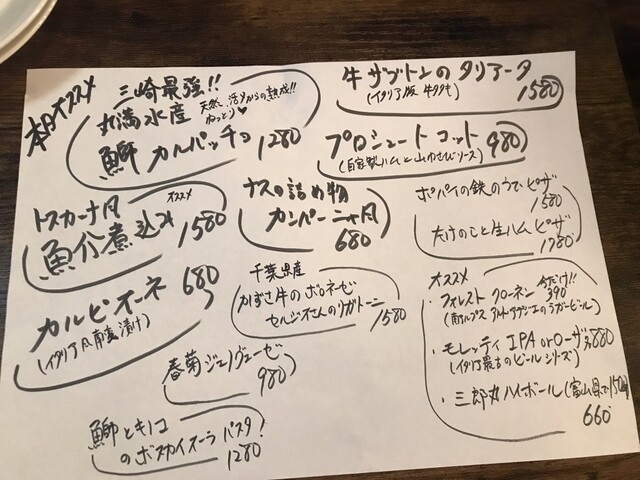 本日オススメ
三崎最強!!
丸満水産
天然で、活〆からの熟成!!
ねっとり♥
鰤 カルパッチョ
1280
牛ザブトンのタリアータ
(イタリア版 牛タタキ)
1580
プロシュート コット 980
(自家製ハムと山わさびソース)
トスカーナ風
オススメ
魚介煮込み 1580
ナスの詰め物
カンパーニャ風
680
ポパイの鉄のうでピザ
1580
たけのこと生ハムピザ
1780
カルピオーネ 680
(イタリア風南蛮漬け)
千葉県産
かずさ牛のボロネーゼ
セルジオさんのリガトーニ
1580
オススメ
・フォレスト クローネン 今だけ!! 390
(南アルプス アルトアディジェのラガービール)
・モレッティ IPA or ローザ 880
(イタリア最古のビールシリーズ)
・三郎丸ハイボール (富山県で
660
春菊ジェノヴェーゼ
980
鰤ときのこ
のボスカイオーラ パスタ!
1280